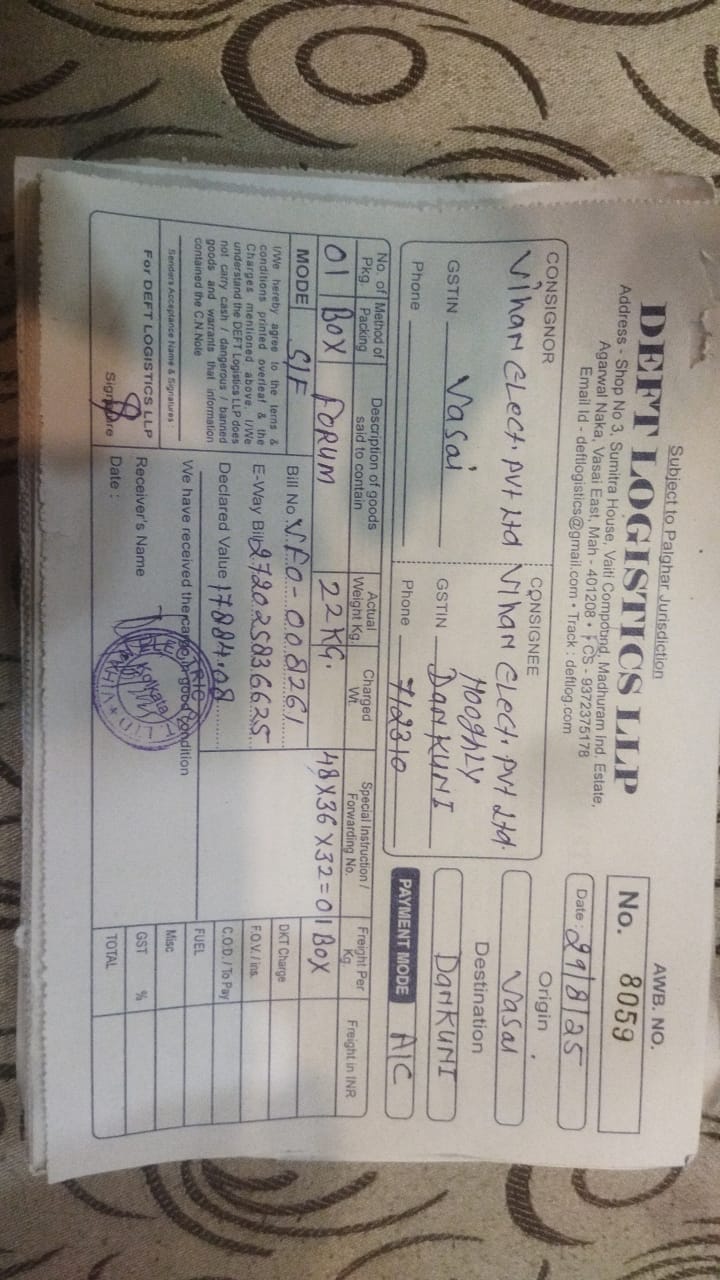 Subject to Palghar Jurisdiction
DEFT LOGISTICS LLP
Address - Shop No 3, Sumitra House, Vaiti Compound, Madhuram Ind. Estate,
Agarwal Naka, Vasai East, Mah - 401208 • CS - 9372375178
Email Id - deftlogistics@gmail.com • Track : deftlog.com
AWB. NO.
No. 8059
Date : 29/8/25
CONSIGNOR
Vihan Elect. Pvt Ltd
Vasai
GSTIN
Phone
CONSIGNEE
Vihan Elect. Pvt Ltd.
Hooghly
DanKUNI
GSTIN
712310
Phone
Origin
Vasai
Destination
DanKUNI
PAYMENT MODE A/C
No. of Pkg.
Method of Packing
Description of goods said to contain
Actual Weight Kg.
Charged Wt.
Special Instruction / Forwarding No.
Freight Per Kg.
Freight in INR
01 BOX FORUM 22 KG. 48X36X32=01 BOX
MODE S/F
Bill No. V.F.O-008261
E-Way Bill 272025836625
Declared Value 17884.08
I/We hereby agree to the terms &
conditions printed overleaf & the
Charges mentioned above. I/We
understand the DEFT Logistics LLP does
not carry cash / dangerous / banned
goods and warrants that information
contained the C.N.Note
Senders Acceptance Name & Signatures :
For DEFT LOGISTICS LLP
Signature
We have received the cargo in good condition
Receiver's Name
Date :
Kolkata
DKT Charge
F.O.V. / ins.
C.O.D / To Pay
FUEL
Misc
GST %
TOTAL